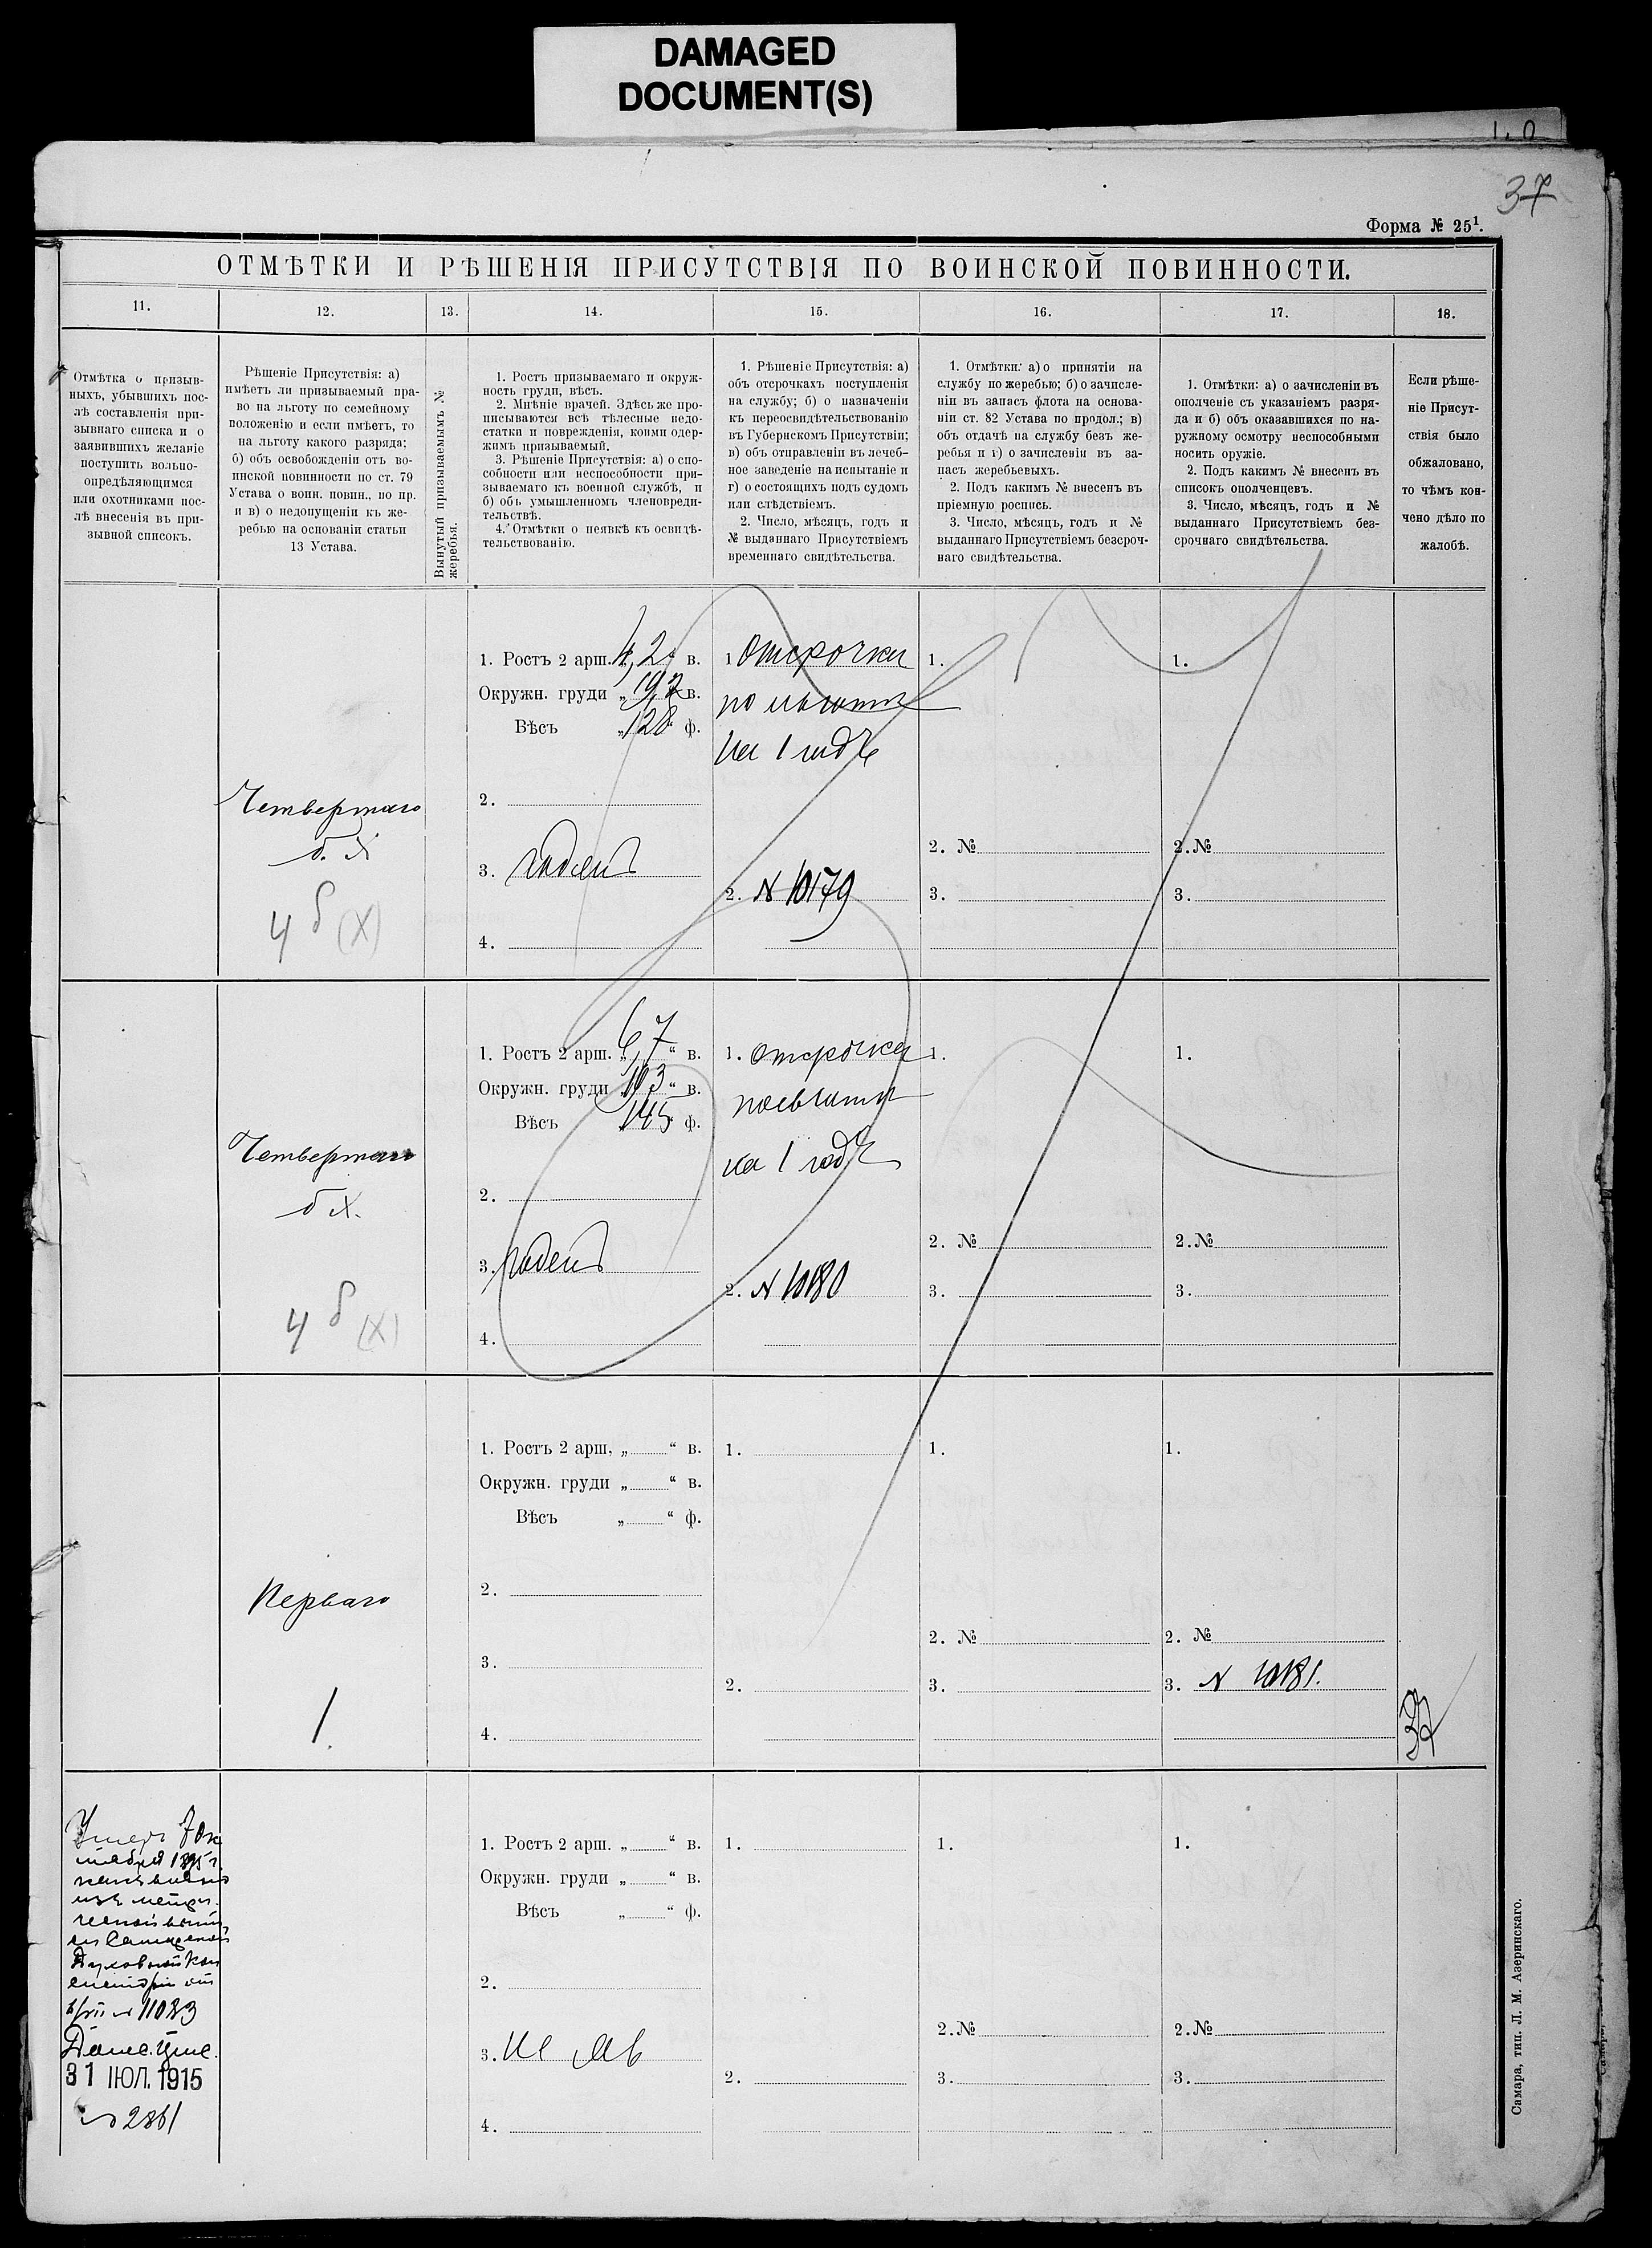 DAMAGED
DOCUMENT(S)
37
Форма № 25¹.
ОТМѢТКИ И РѢШЕНІЯ ПРИСУТСТВІЯ ПО ВОИНСКОЙ ПОВИННОСТИ.
11.
12.
13.
14.
15.
16.
17.
18.
Отмѣтка о призыв-
ныхъ, убывшихъ пос-
лѣ составленія при-
зывнаго списка и о
заявившихъ желаніе
поступить вольно-
опредѣляющимся
или охотниками пос-
лѣ внесенія въ при-
зывной списокъ.
Рѣшеніе Присутствія: а)
имѣетъ ли призываемый пра-
во на льготу по семейному
положенію и если имѣетъ, то
на льготу какого разряда;
б) объ освобожденіи отъ во-
инской повинности по ст. 79
Устава о воин. повин., но пр.
и в) о недопущеніи къ же-
ребью на основаніи статьи
13 Устава.
Вынутый призываемымъ №
жеребья.
1. Ростъ призываемаго и окруж-
ность груди, вѣсъ.
2. Мнѣніе врачей. Здѣсь же про-
писываются всѣ тѣлесные недо-
статки и поврежденія, коими одер-
жимъ призываемый.
3. Рѣшеніе Присутствія: а) о спо-
собности или неспособности при-
зываемаго къ военной службѣ, и
б) объ умышленномъ членовреди-
тельствѣ.
4. Отмѣтки о неявкѣ къ освидѣ-
тельствованію.
1. Рѣшеніе Присутствія: а)
объ отсрочкахъ поступленія
на службу; б) о назначеніи
къ переосвидѣтельствованію
въ Губернскомъ Присутствіи;
в) объ отправленіи въ лечеб-
ное заведеніе на испытаніе и
г) о состоящихъ подъ судомъ
или слѣдствіемъ.
2. Число, мѣсяцъ, годъ и
№ выданнаго Присутствіемъ
временнаго свидѣтельства.
1. Отмѣтки: а) о принятіи на
службу по жеребью; б) о зачисле-
ніи въ запасъ флота на основа-
ніи ст. 82 Устава по продол.; в)
объ отдачѣ на службу безъ же-
ребья и г) о зачисленіи въ за-
пасъ жеребьевыхъ.
2. Подъ какимъ № внесенъ въ
пріемную роспись.
3. Число, мѣсяцъ, годъ и №
выданнаго Присутствіемъ безсроч-
наго свидѣтельства.
1. Отмѣтки: а) о зачисленіи въ
ополченіе съ указаніемъ разря-
да и б) объ оказавшихся по на-
ружному осмотру неспособными
носить оружіе.
2. Подъ какимъ № внесенъ въ
списокъ ополченцевъ.
3. Число, мѣсяцъ, годъ и №
выданнаго Присутствіемъ без-
срочнаго свидѣтельства.
Если рѣше-
ніе Присут-
ствія было
обжаловано,
то чѣмъ кон-
чено дѣло по
жалобѣ.
Четвертаго
б. Х
4 б (Х)
1. Ростъ 2 арш. 4,2 в.
Окружн. груди „ 19,2 в.
Вѣсъ „ 128 ф.
2.
3. годенъ
4.
1 Отсрочка
по льготѣ
на 1 годъ
2. № 10179
1.
2. №
3.
1.
2. №
3.
Четвертаго
б Х.
4 б (Х)
1. Ростъ 2 арш. „ 6,7 “ в.
Окружн. груди „ 193 “ в.
Вѣсъ 145 ф.
2.
3. годенъ
4.
1. отсрочка
по льготѣ
на 1 годъ
2. № 10180
1.
2. №
3.
1.
2. №
3.
Перваго
1.
1. Ростъ 2 арш. „ “ в.
Окружн. груди „ “ в.
Вѣсъ „ “ ф.
2.
3.
4.
1.
2.
1.
2. №
3.
1.
2. №
3. № 10181.
37
Умеръ 7 ок
тября 1895 г.
какъ видно
изъ метри
ческой выпи
си Самарской
Духовной Кон
систоріи от
№ 11083
31 ІЮЛ. 1915
№ 2861
1. Ростъ 2 арш. „ “ в.
Окружн. груди „ “ в.
Вѣсъ „ “ ф.
2.
3. не яв
4.
1.
2.
1.
2. №
3.
1.
2. №
3.
Самара, тип. Л. М. Азеринскаго.